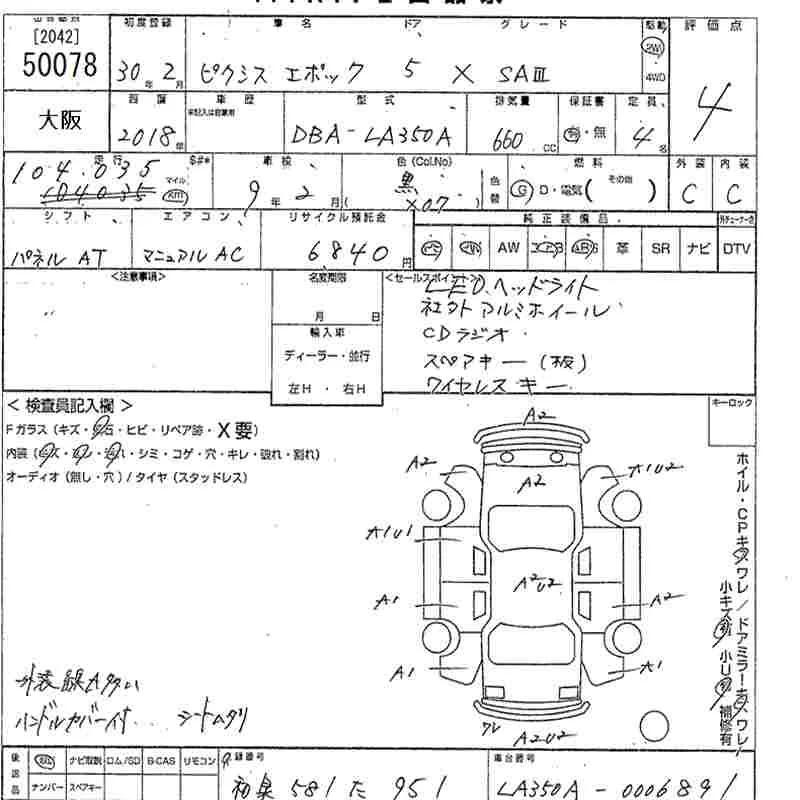 [2042]
50078
初度登録 車名 ドア グレード 駆動 評価点
30年 2月 ピクシス エポック 5 X SAⅢ 2WD 4WD 4
大阪
車歴 型式 排気量 保証書 定員
未記入は自家用
2018年 DBA-LA350A 660cc 有・無 4名
走行 車検 色(Col.No) 燃料 外装 内装
104,035 マイル
104035 km 9年 2月 黒 X07 色替 G D・電気( その他 ) C C
シフト エアコン リサイクル預託金 純正装備品
パネル AT マニュアル AC 6840円 AW 革 SR ナビ DTV
<注意事項> 名変期限 <セールスポイント>
月 日
LED.ヘッドライト
社外アルミホイール
輸入車
CDラジオ
ディーラー・並行
スペアキー(板)
左H・右H
ワイヤレスキー
<検査員記入欄> キーロック
Fガラス(キズ・石・ヒビ・リペア跡・X要)
内装(キズ・汚レ・スレ・シミ・コゲ・穴・キレ・破れ・割れ)
オーディオ(無し・穴)/タイヤ(スタッドレス)
ホイル・CPキズワレ/ドアミラーキズワレ/
小キズ有 小U有 補修有
A2
A2 A2 A1U2
A1U1
A2U2
A1 A2
A1 A1
ワレ A2U2
外装線A多い
ハンドルカバー付 シートスタリ
後日品 ナビ取説 ロム/SD B-CAS リモコン 登録番号 車台番号
ナンバー スペアキー 和泉 581 た 951 LA350A-0006891